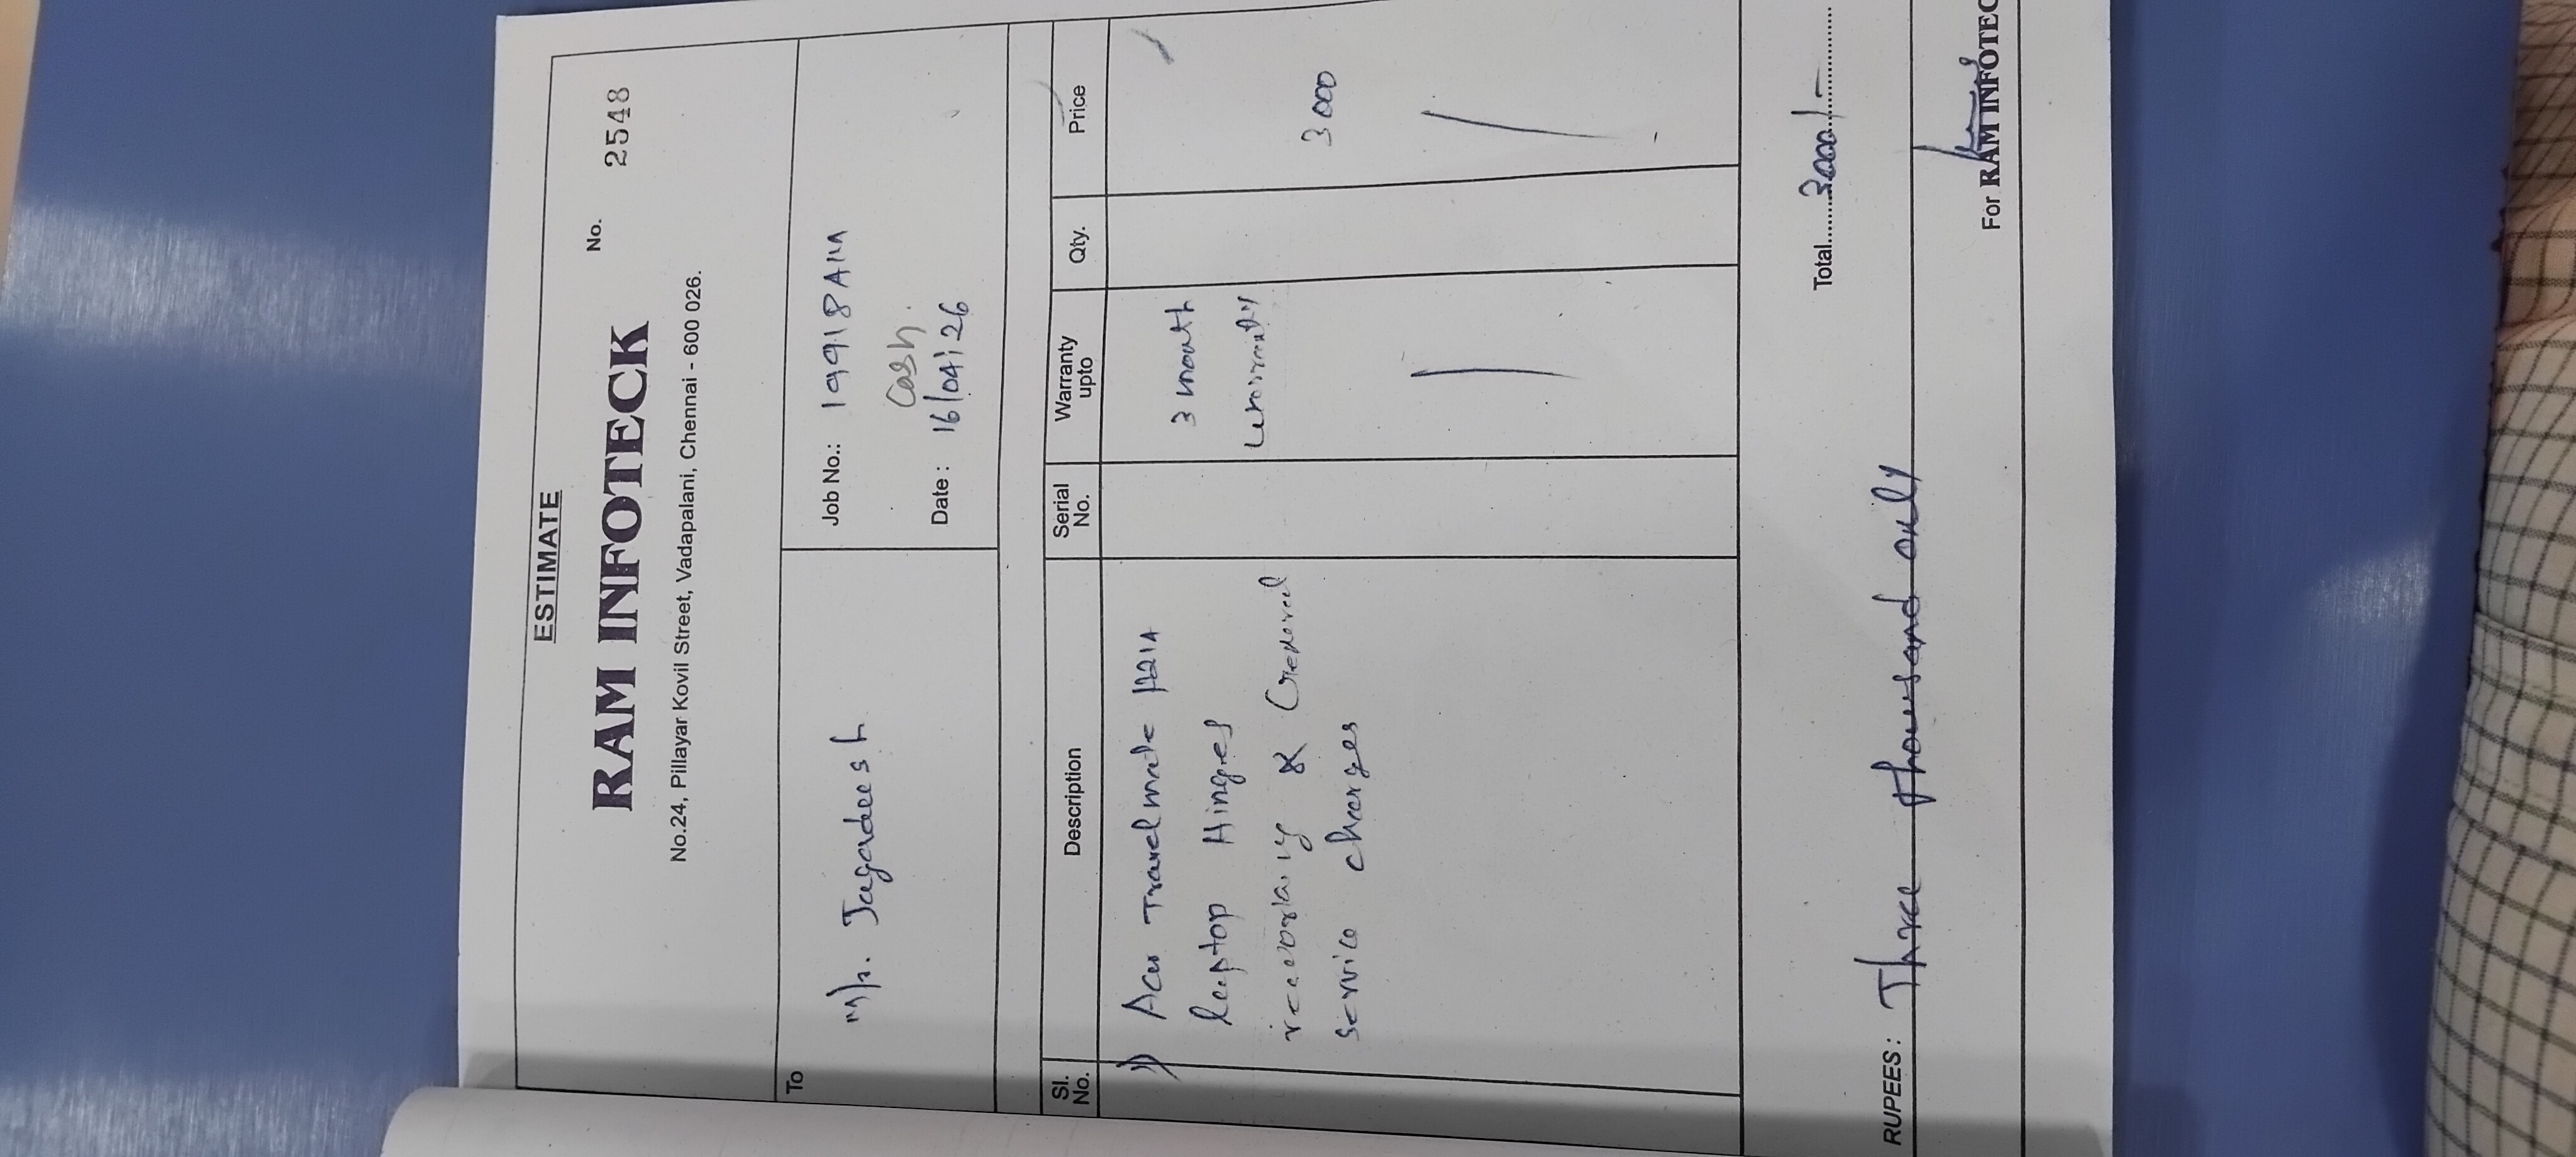 ESTIMATE
RAM INFOTECK
No. 2548
No.24, Pillayar Kovil Street, Vadapalani, Chennai - 600 026.
To
Jagadeesh
Job No.: 19918
Cash.
Date : 16/04/26
Sl. No. Description Serial No. Warranty upto Qty. Price
1) Acer Travelmate P214 3 month
laptop Hinges warranty
& General 3000
service charges
Total 3000/-
RUPEES: Three thousand only
For RAM INFOTEC